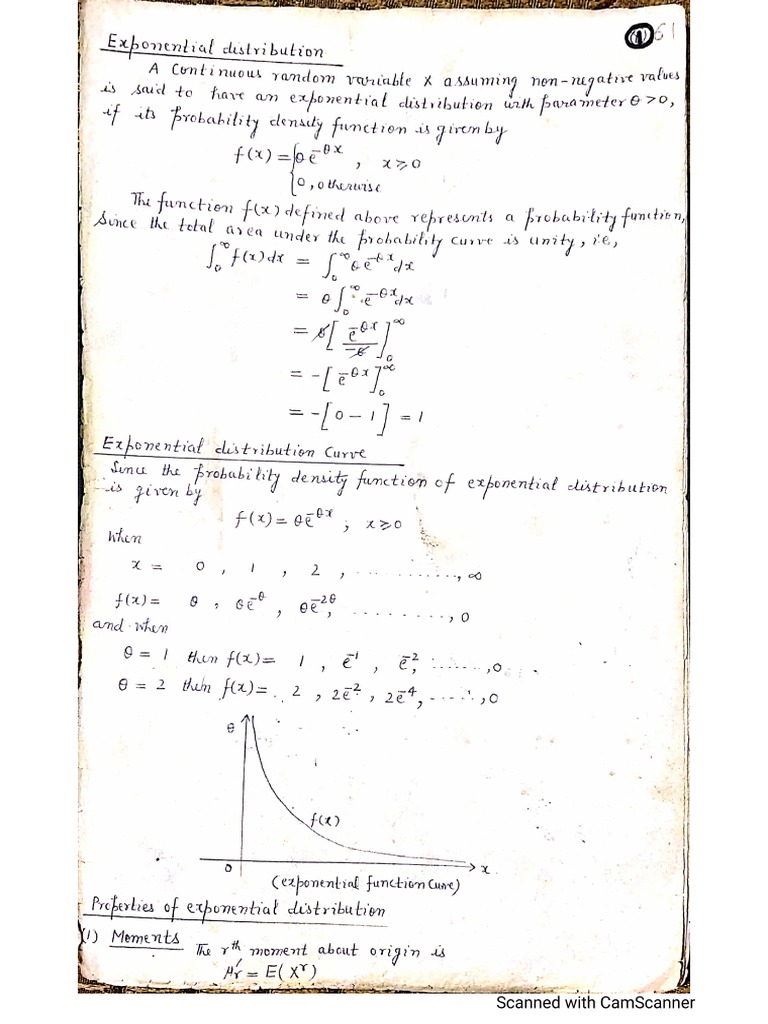 (1) 61
Exponential distribution
A Continuous random variable X assuming non-negative values
is said to have an exponential distribution with parameter θ >0,
if its probability density function is given by
f(x) = { θ e^{-θx} , x ≥ 0
{ 0, otherwise
The function f(x) defined above represents a probability function,
Since the total area under the probability curve is unity, i.e,
∫_0^∞ f(x) dx = ∫_0^∞ θ e^{-θx} dx
= θ ∫_0^∞ e^{-θx} dx
= θ [ e^{-θx} / -θ ]_0^∞
= - [ e^{-θx} ]_0^∞
= - [ 0 - 1 ] = 1
Exponential distribution Curve
Since the probability density function of exponential distribution
is given by
f(x) = θ e^{-θx} ; x ≥ 0
when
x = 0 , 1 , 2 , ............, ∞
f(x) = θ , θ e^{-θ} , θ e^{-2θ}, ........., 0
and when
θ = 1 then f(x) = 1 , e^{-1} , e^{-2}, ......., 0
θ = 2 then f(x) = 2 , 2e^{-2} , 2e^{-4}, ......, 0
θ
f(x)
0 x
(exponential function Curve)
Properties of exponential distribution
(1) Moments The r^{th} moment about origin is
μ'_r = E( X^r )
Scanned with CamScanner